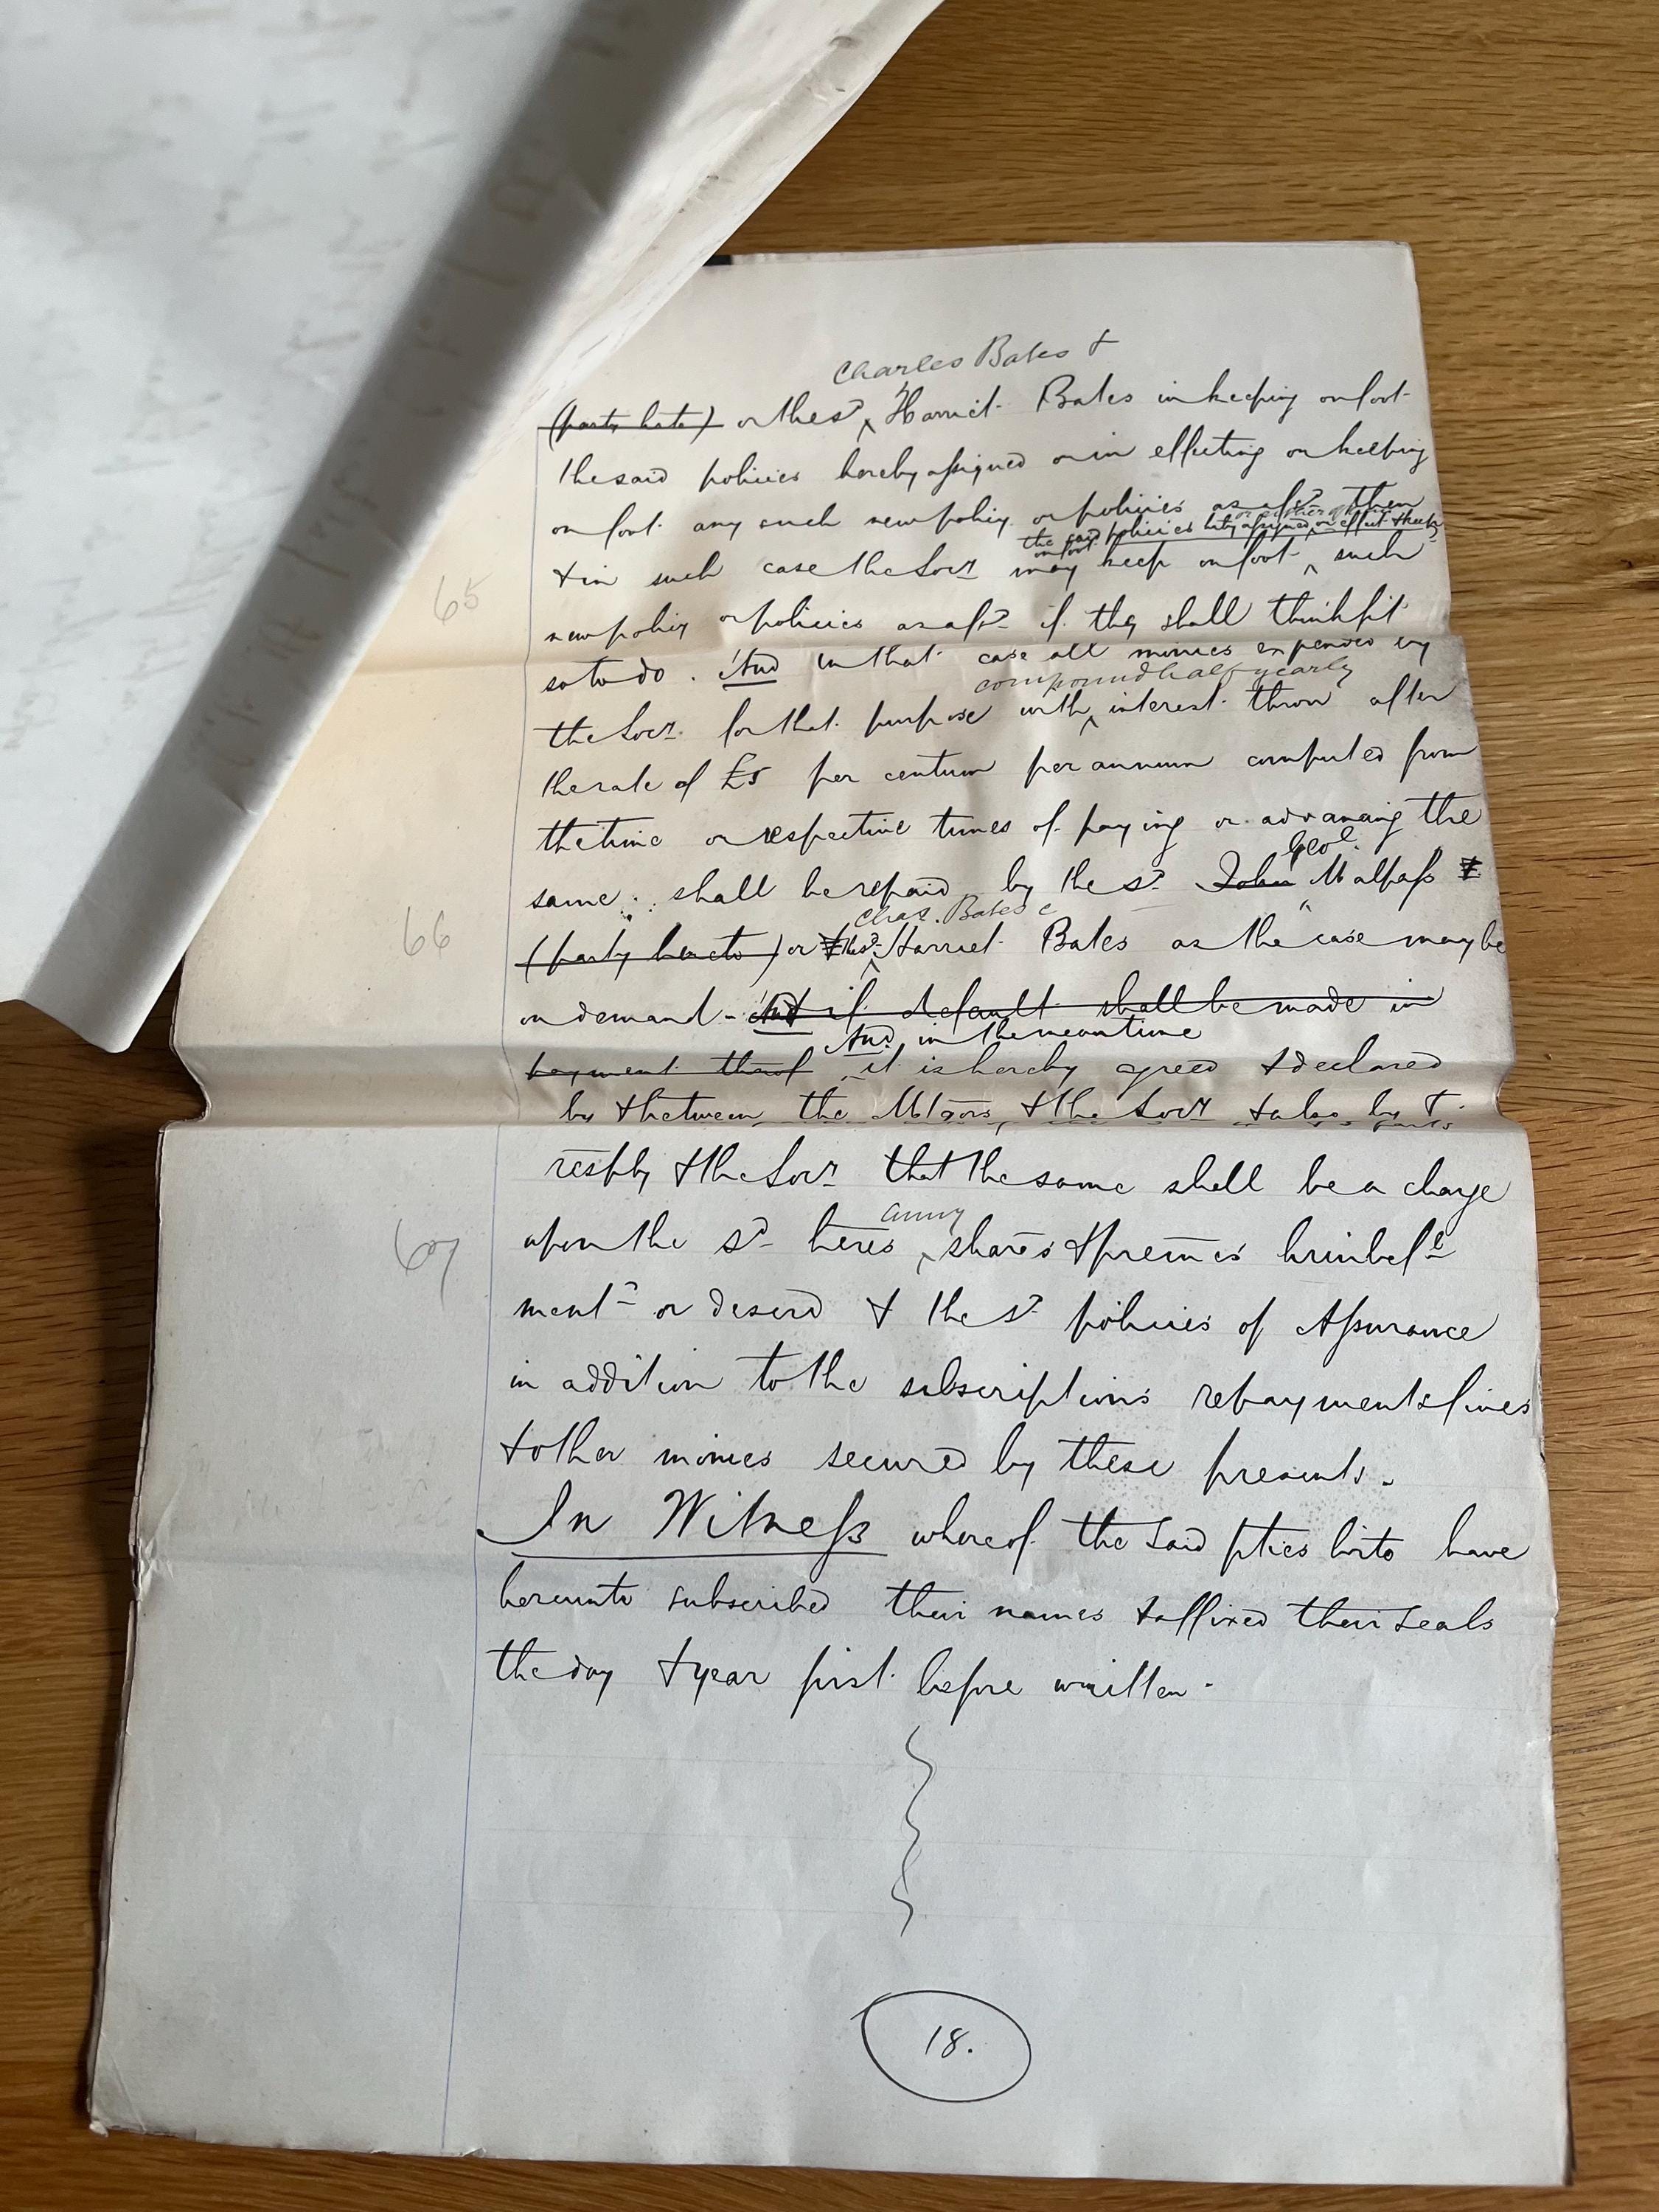 Charles Bates &
(party hrto) or the sd Harriet Bates in keeping on foot
the said policies hereby assigned or in effecting or keeping
on foot any such new policy or policies as afsd
or either of them
the said policies hby assigned or effect & keep
on foot
& in such case the Socy may keep on foot such
65
new policy or policies as afsd if they shall think fit
so to do. And in that case all monies expended by
compound half yearly
the Socy for that purpose with interest thron after
the rate of £5 per centum per annum computed from
the time or respective times of paying or advancing the
Geo.
same shall be repaid by the sd John Malpass &
Chas. Bates &
66
(party hereto) or the sd Harriet Bates as the case may be
on demand - And if default shall be made in
And in the meantime
payment throf it is hereby agreed & declared
by & between the Mtgors & the Socy
resply & the Socy that the same shall be a charge
anny
67
upon the sd heres shares & premes hrinbefe
mentd or descrd & the sd policies of Assurance
in addition to the subscriptions repayments fines
& other monies secured by these presents.
In Witness whereof the said pties hrto have
hereunto subscribed their names & affixed their seals
the day & year first before written.
18.